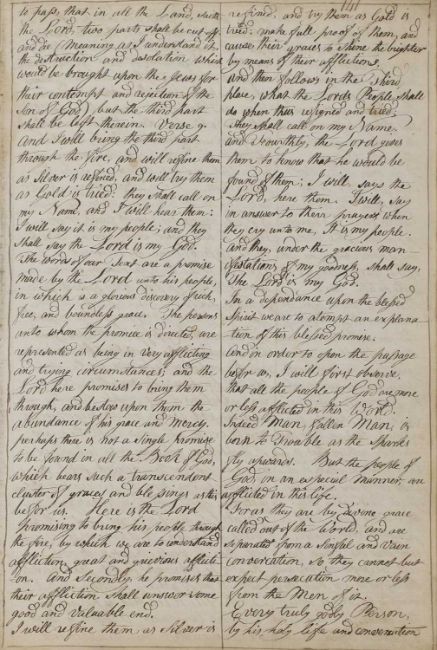 to pass, that in all the Land, saith
the Lord, two parts shall be cut off
and die (Meaning as I understand it,
the destruction and desolation which
would be brought upon the Jews for
their contempt and rejection of the
Son of God) but the third part
shall be left therein. Verse 9.
and I will bring the third part
through the fire, and will refine them
as Silver is refined, and will try them
as Gold is tried: they shall call on
my Name, and I will hear them:
I will say it is my people; and they
shall say the Lord is my God.
The words of our Text are a promise
made by the Lord unto his people,
in which is a glorious discovery of rich,
free, and boundless grace. The persons
unto whom the promise is directed, are
represented as being in very afflicting
and trying circumstances; and the
Lord here promises to bring them
through, and bestow upon them the
abundance of his grace and mercy.
perhaps there is not a single promise
to be found in all the Book of God,
which bears such a transcendent
cluster of graces and blessings as this
before us. Here is the Lord
promising to bring his people through
the fire, by which we are to understand
affliction, great and grievous afflicti-
on. And Secondly, he promises that
their affliction shall answer some
good and valuable end.
I will refine them, as Silver is
141
refined, and try them as Gold is
tried: make full proof of them, and
cause their graces to shine the brighter
by means of their afflictions.
and then follows in the third
place, what the Lords People shall
do when thus refined and tried;
They shall call on my Name.
and Fourthly, the Lord gives
them to know that he would be
found of them; I will, says the
Lord, here them. I will, say
in answer to their prayers when
they cry unto me, It is my people.
And they, under the gracious man-
ifestations of my goodness, shall say,
The Lord is my God.
In a dependance upon the blessed
Spirit we are to atempt an explana
tion of this blessed promise.
And in order to open the passage
before us, I will first observe,
that all the people of God are more
or less afflicted in this World.
Indeed Man, fallen Man, is
born to trouble as the sparks
fly upward. But the people of
God, in an especial manner, are
afflicted in this life.
For as they are by divine grace
called out of the World, and are
separated from a sinful and vain
conversation, so they cannot but
expect persecution more or less
from the Men of it.
Every truly godly Person,
by his holy life and conversation